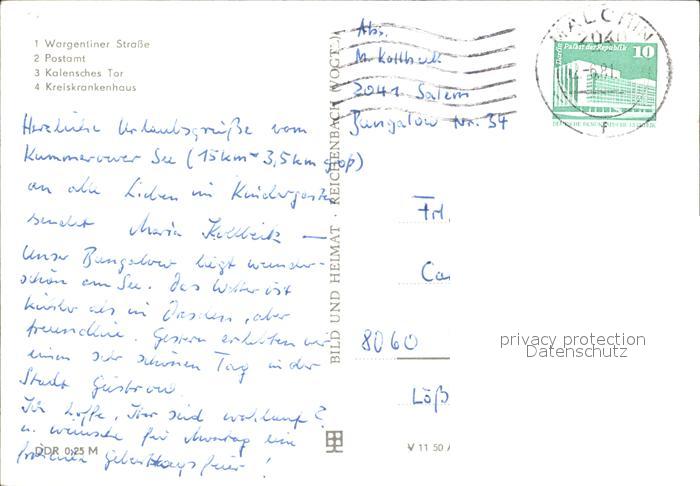 1 Wargentiner Straße
2 Postamt
3 Kalensches Tor
4 Kreiskrankenhaus
Herzliche Urlaubsgrüße vom
Kummerower See (15km * 3,5km groß)
an alle Lieben im Kindergarten
sendet Maria
Unser Bungalow liegt wunder-
schön am See. Das Wetter ist
kühler als in Dresden, aber
freundlich. Gestern erlebten wir
einen sehr schönen Tag in der
Stadt Güstrow.
Ich hoffe, Ihr seid wohlauf?
u. wünsche für Montag eine
fröhliche Geburtstagsfeier!
DDR 0,25 M
BILD UND HEIMAT · REICHENBACH (VOGTL)
Abs.
M. Kollbeck
2041 Salem
Bungalow Nr. 34
MALCHIN
2040
Berlin Palast der Republik
10
f
Frl.
Ca
8060
Löß
V 11 50
privacy protection
Datenschutz